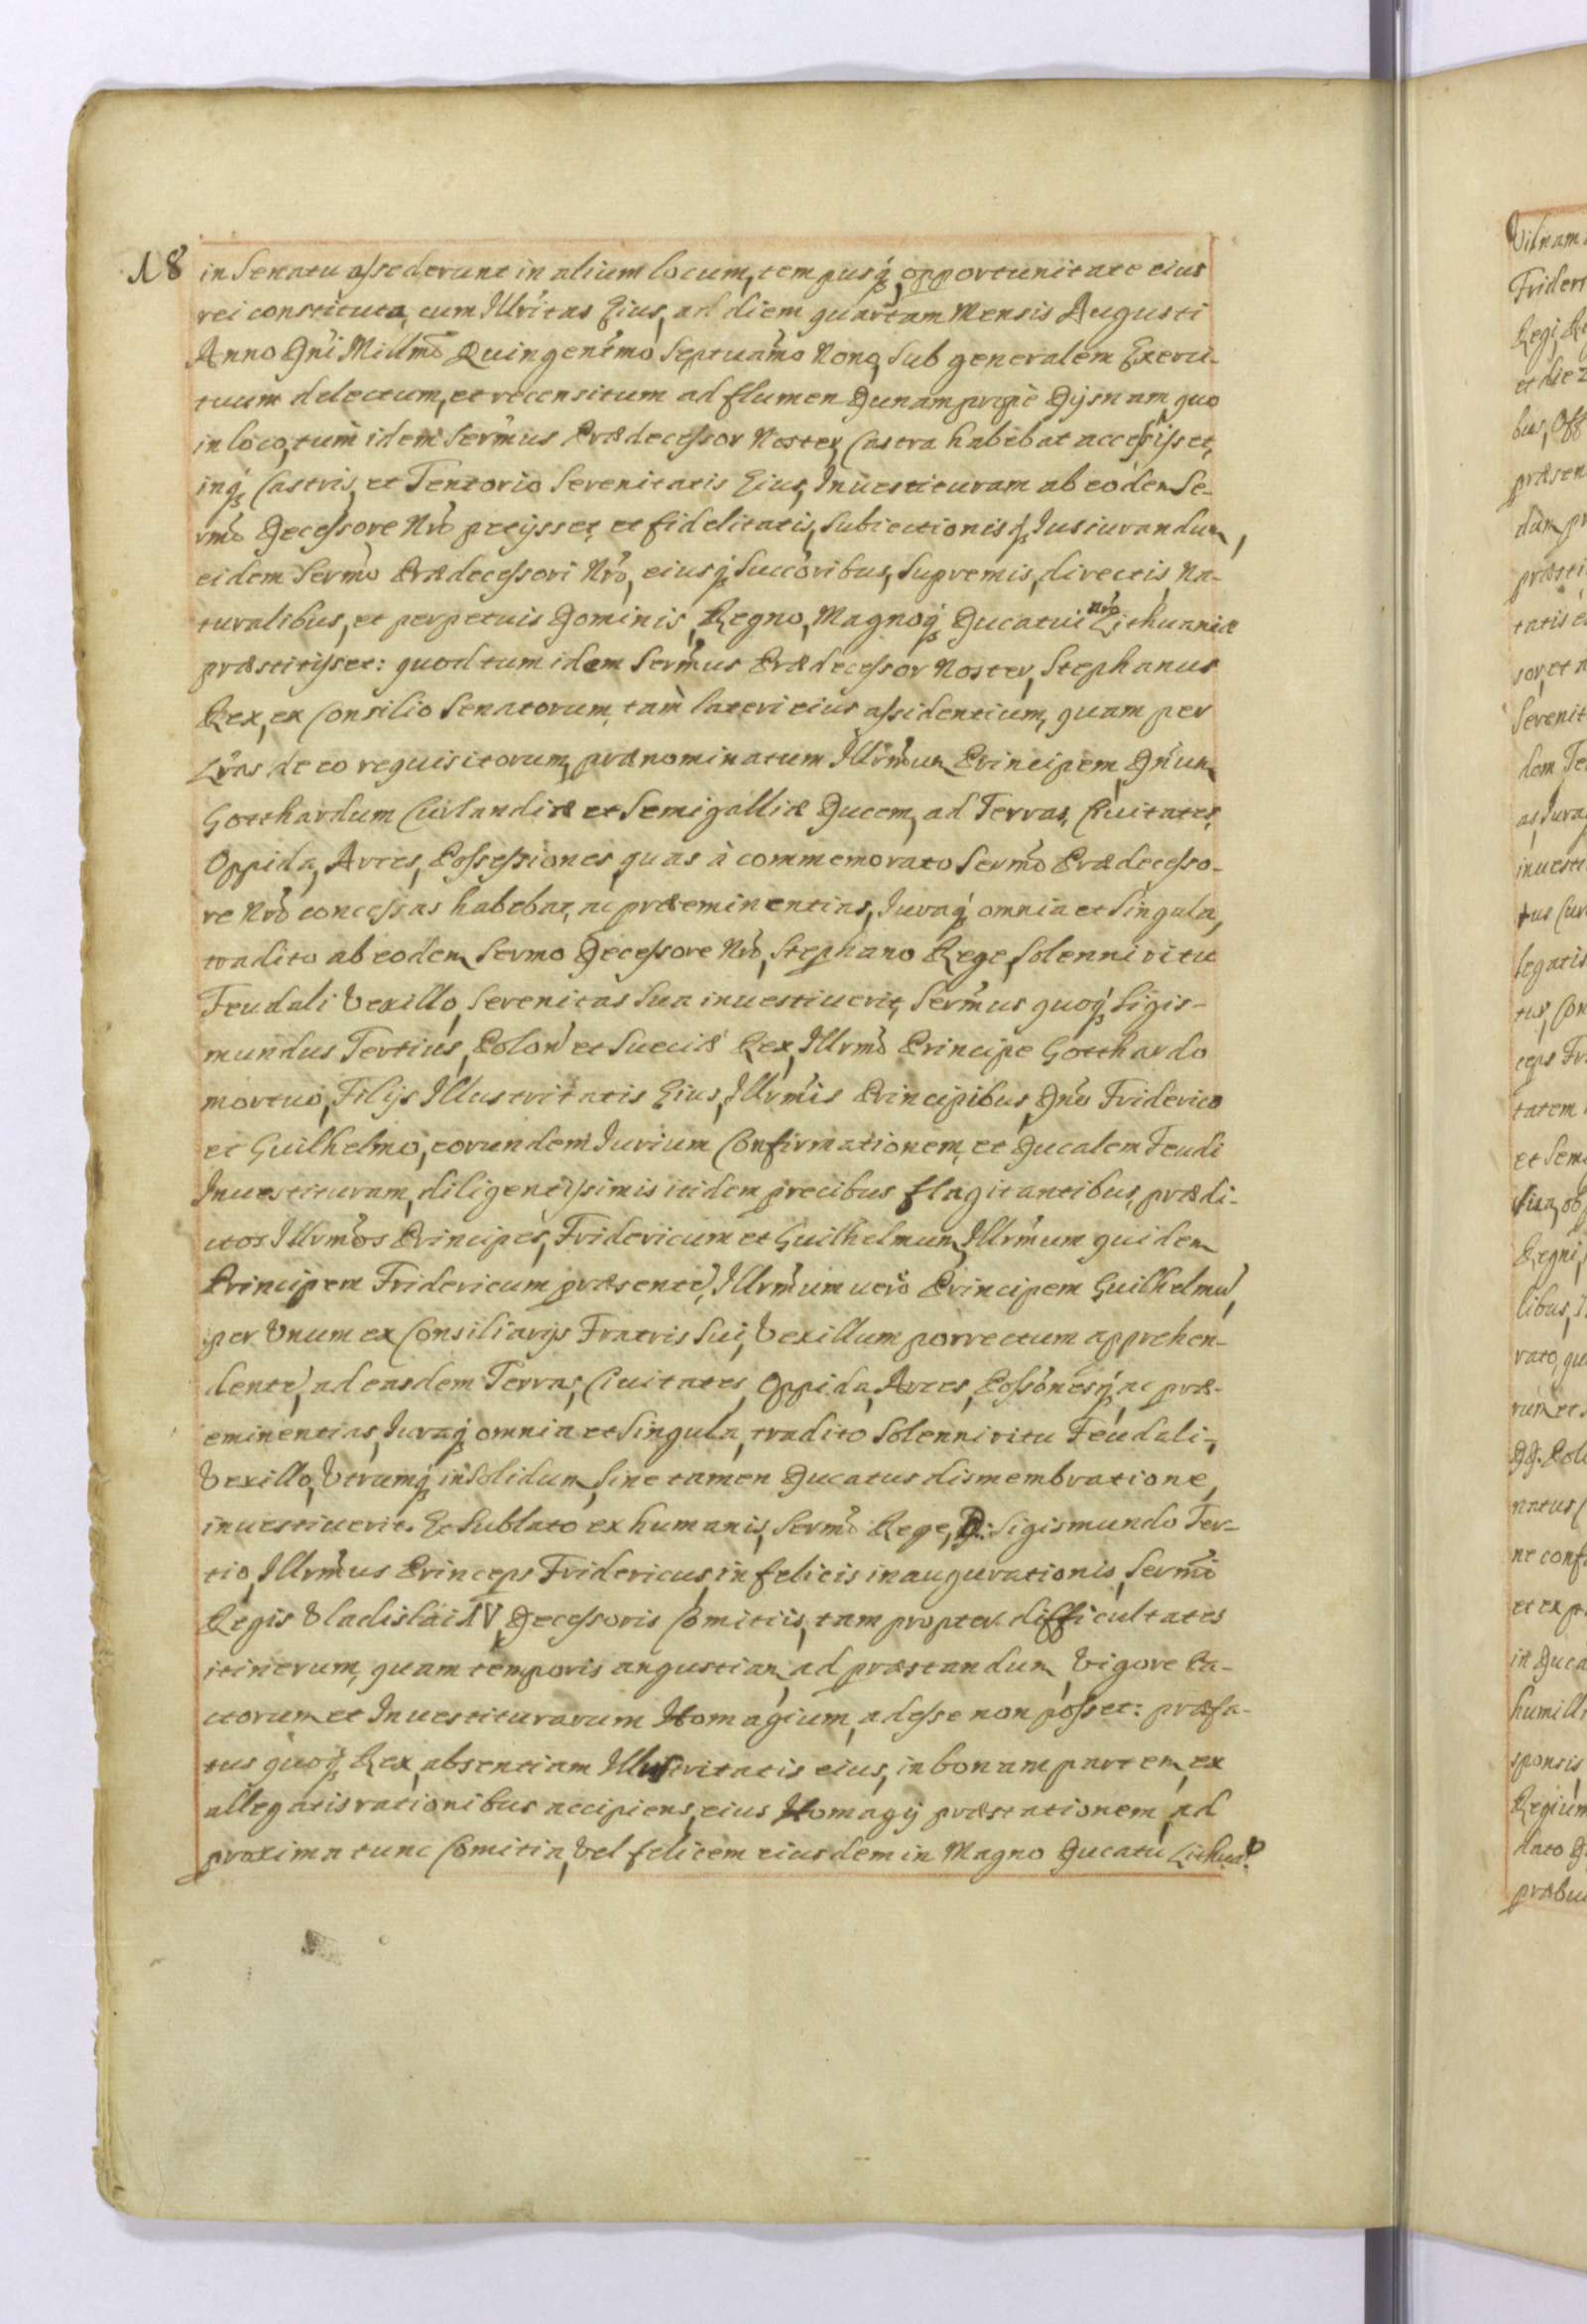 18 in Senatu assederunt in alium locum, tempusq́, opportunitate eius
rei constituta, cum Illrítas Eius, ad diem quartam Mensis Augusti
Anno Dńi Millmo Quingentmo Septuamo Nono, Sub generalem Exerci-
tuum delectum, et recensitum ad flumen Dunam propè Dÿsnam, quo
in loco, tum idem Sermus Prædecessor Noster, Castra habebat accessisset,
inq́ Castris, et Tentorio Serenitatis Eius, Inuestituram ab eodem Se-
rmo Decessore Nró petijsset, et fidelitatis, Subiectionisq́ Jusiurandum,
eidem Sermo Prædecessori Nró, eiusq́ Succoribus, Supremis, directis, Na-
turalibus, et perpetuis Dominis, Regno, Magnoq́ Ducatui Nró Lithuaniæ
præstitisset: quod tum idem Sermus Prædecessor Noster, Stephanus
Rex, ex Consilio Senatorum, tam lateri eius assidentium, quam per
Lrás de eo requisitorum, prænominatum Illrmum Principem, Dńum
Gotthardum Curlandiæ et Semigalliæ Ducem, ad Terras, Ciuitates,
Oppida, Arces, Possessiones, quas à commemorato Sermo Prædecesso-
re Nró concessas habebat, ac præeminentias, Juraq́ omnia et Singula,
tradito ab eodem Sermo Decessore Nró, Stephano Rege, Solenni ritu
Feudali Vexillo, Serenitas Sua inuestiuerit, Sermus quoq́ Sigis-
mundus Tertius, Polon et Sueciæ Rex, Illrmo Principe Gotthardo
mortuo, Filijs Illustritatis Eius, Illrmis Principibus, Dńo Friderico
et Guilhelmo, eorundem Jurium Confirmationem, et Ducalem Feudi
Inuestituram, diligentissimis itidem precibus flagitantibus, prædi-
ctos Illrmos Principes, Fridericum et Guilhelmum, Illrmum quidem
Principem Fridericum præsente, Illrmum uerò Principem Guilhelmú,
per Vnum ex Consiliarijs Fratris Sui, Vexillum porrectum apprehen-
dente, ad easdem Terras, Ciuitates, Oppida, Arces, Possónesq́ ac præ-
eminentias, Juraq́ omnia et Singula, tradito Solenni ritu Feudali,
Vexillo, Vtrumq́ in Solidum, Sine tamen Ducatus dismembratione,
inuestiuerit. Et Sublato ex humanis, Sermo Rege, D: Sigismundo Ter-
tio, Illrmus Princeps Fridericus, in felicis inaugurationis, Sermi
Regis Vladislai IV, Decessoris Comitiis, tam propter difficultates
itinerum, quam temporis angustiam, ad præstandum, Vigore Pa-
ctorum et Inuestiturarum Homagium, adesse non posset: præfa-
tus quoq́ Rex, absentiam Illustritatis eius, in bonam partem, ex
allegatis rationibus accipiens, eius Homagij præstationem, ad
proxima tunc Comitia, Vel felicem eiusdem in Magno Ducatu Lithuaæ